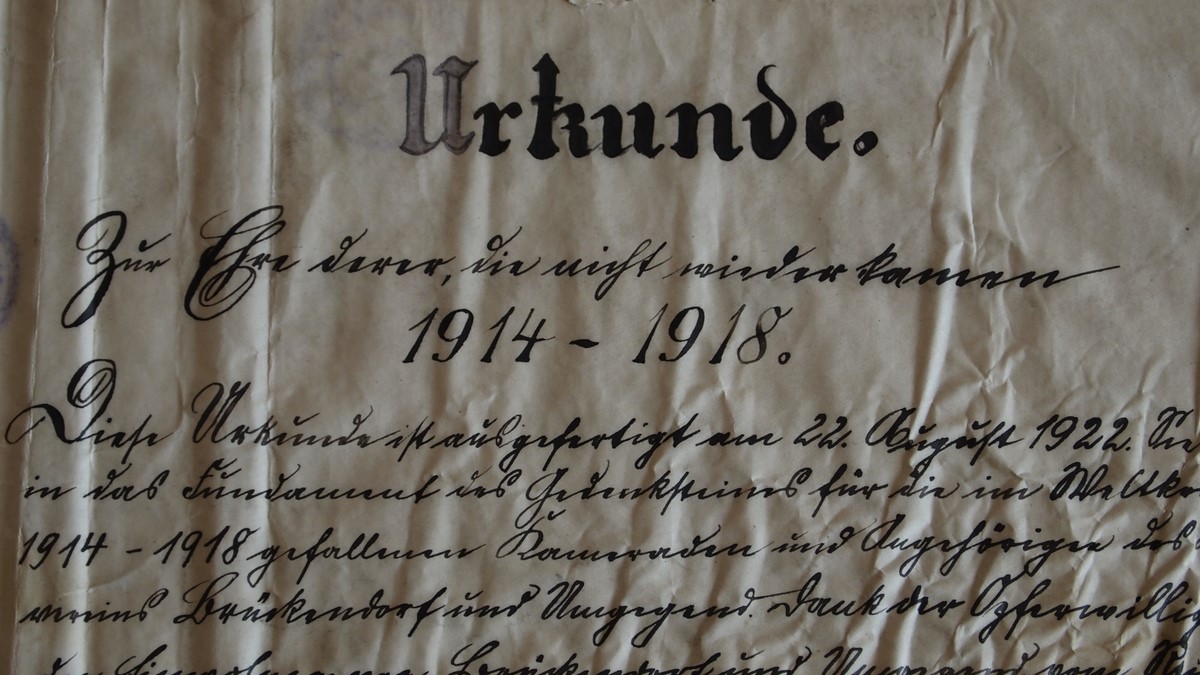 Urkunde.
Zur Ehre derer, die nicht wiederkamen
1914 - 1918.
Diese Urkunde ist ausgefertigt am 22. August 1922. Sie
in das Fundament des Gedenksteines für die im Weltkr
1914 - 1918 gefallenen Kameraden und Angehörigen des
vereins Brückendorf und Umgegend. Dank der Opferwillig
Brückendorf und Umgegend vom